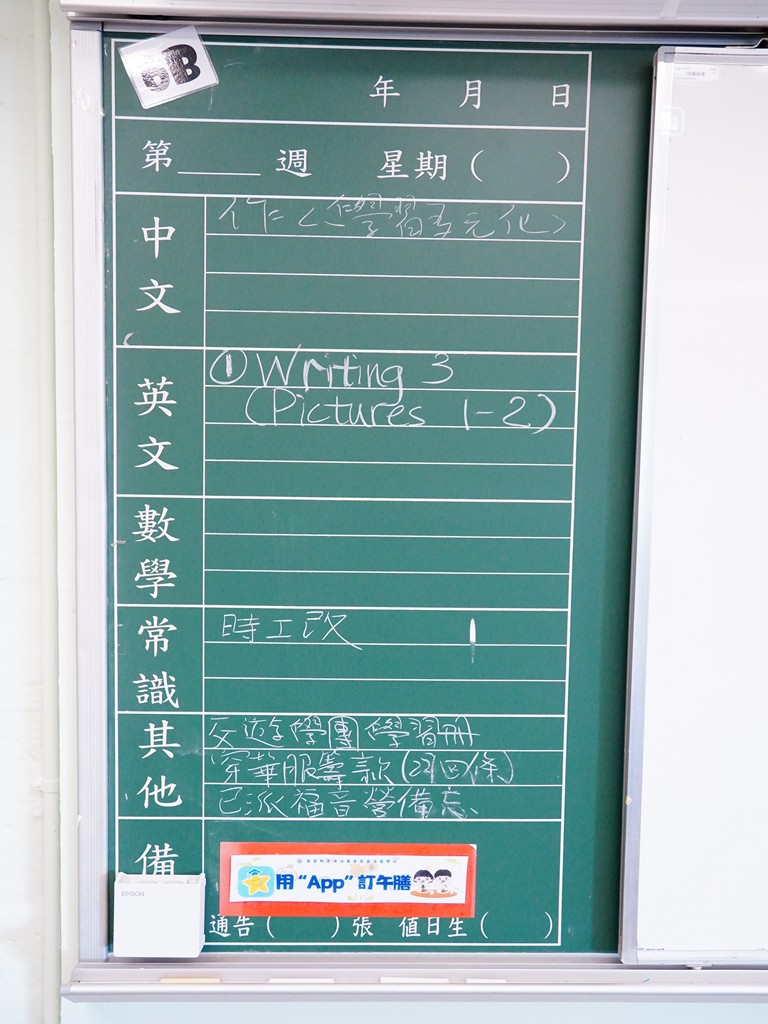 6B
年 月 日
第____週 星期( )
中文
作=<<學習多元化>
英文
① Writing 3
(Pictures 1-2)
數學
常識
時工改
其他
交遊學團學習冊
穿華服籌款(23回條)
已派福音營備忘
備
用 "App" 訂午膳
EPSON
通告( )張 值日生( )